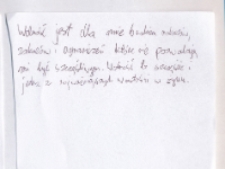 Wolność jest dla mnie brakiem nakazów,
zakazów i ograniczeń które nie pozwalają
mi być szczęśliwym. Wolność to szczęście i
jedna z najważniejszych wartości w życiu.